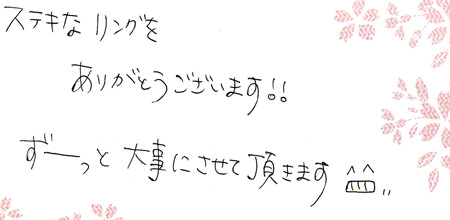 ステキな リングを
ありがとうございます!!
ずーっと 大事にさせて頂きます